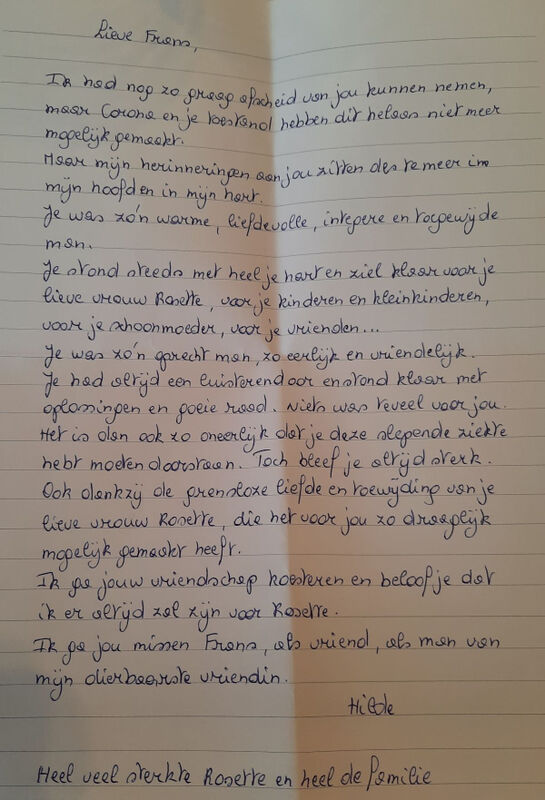 Lieve Frans,
Ik had nog zo graag afscheid van jou kunnen nemen,
maar Corona en je toestand hebben dit helaas niet meer
mogelijk gemaakt.
Maar mijn herinneringen aan jou zitten des te meer in
mijn hoofd en in mijn hart.
Je was zo'n warme, liefdevolle, integere en toegewijde
man.
Je stond steeds met heel je hart en ziel klaar voor je
lieve vrouw Rosette, voor je kinderen en kleinkinderen,
voor je schoonmoeder, voor je vrienden...
Je was zo'n oprecht man, zo eerlijk en vriendelijk.
Je had altijd een luisterend oor en stond klaar met
oplossingen en goeie raad. Niets was teveel voor jou.
Het is dan ook zo oneerlijk dat je deze slepende ziekte
hebt moeten doorstaan. Toch bleef je altijd sterk.
Ook dankzij de grenzeloze liefde en toewijding van je
lieve vrouw Rosette, die het voor jou zo draaglijk
mogelijk gemaakt heeft.
Ik ga jouw vriendschap koesteren en beloof je dat
ik er altijd zal zijn voor Rosette.
Ik ga jou missen Frans, als vriend, als man van
mijn dierbaarste vriendin.
Hilde
Heel veel sterkte Rosette en heel de familie